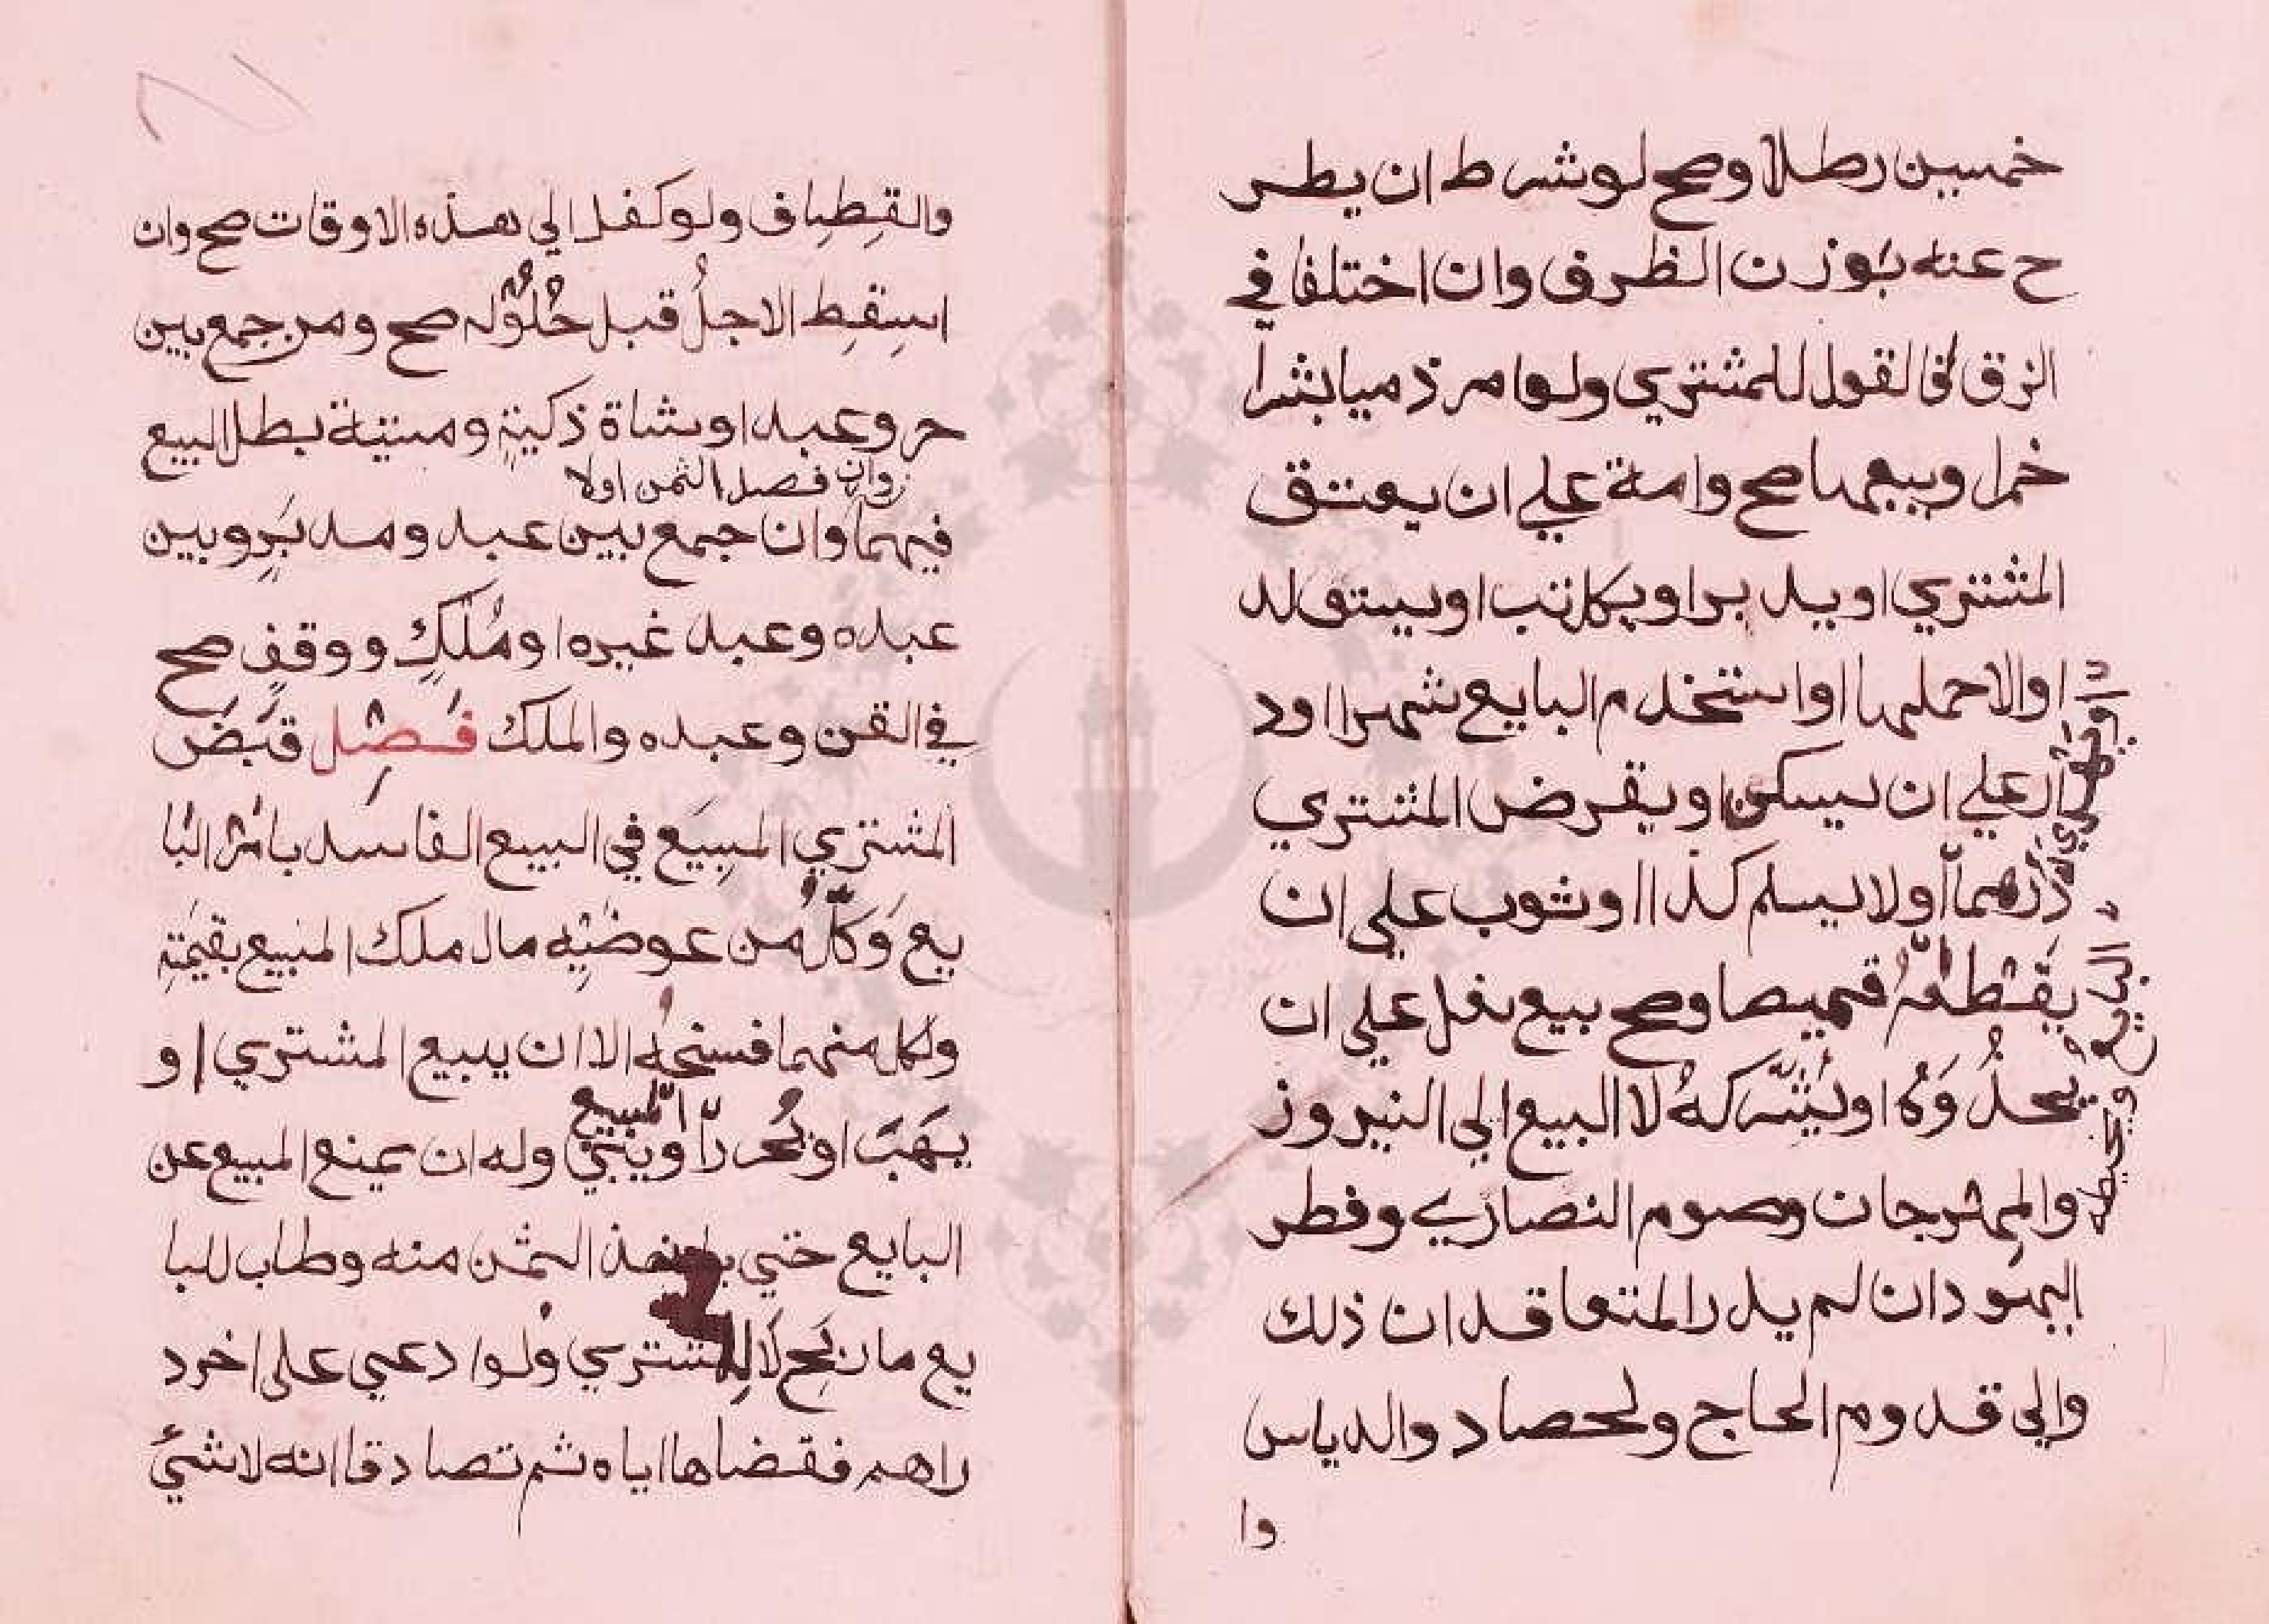 خمسين رطلا وصح لو شرط ان يطر
ح عنه بوزن الظرف وان اختلفا في
الزق فالقول للمشتري ولو امر ذميا بشرا
خمر او بيعها صح وامة علي ان يعتق
المشتري او يدبر او يكاتب او يستولد
او الا حملها او استخدم البايع شهرا او د
ار علي ان يسكن او يقرض المشتري
درهما او لا يسلم كذا او ثوب علي ان
يقطعه قميصا وصح بيع نعل علي ان
يحذوه او يشركه لا البيع الي النيروز
والمهرجان وصوم النصاري وفطر
اليهود ان لم يدر المتعاقدان ذلك
والي قدوم الحاج ولحصاد والدياس
وا
البايع ويخيطه
والقطاف ولو كفل الي هذه الاوقات صح وان
اسقط الاجل قبل حلوله صح ومن جمع بين
حر وعبد او شاة ذكية وميتة بطل البيع
وان فصل الثمن اولا
فيهما وان جمع بين عبد ومدبر وبين
عبده وعبد غيره او ملك ووقف صح
في القن وعبده والملك فصل قبض
المشتري المبيع في البيع الفاسد بامر البا
يع وكل من عوضيه مال ملك المبيع بقيمة
ولكل منهما فسخه الا ان يبيع المشتري او
المبيع
يهب او يحرر او يبني وله ان يمنع المبيع عن
البايع حتي ياخذ الثمن منه وطاب للبا
يع ما ربح لا للمشتري ولو ادعي علي اخر د
راهم فقضاها اياه ثم تصادقا انه لا شيء